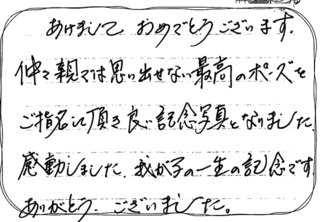 あけまして おめでとうございます。
仲々親々では思い出せない最高のポーズを
ご指名して頂き良い記念写真となりました。
感動しました。我が子の一生の記念です。
ありがとう、ございました。